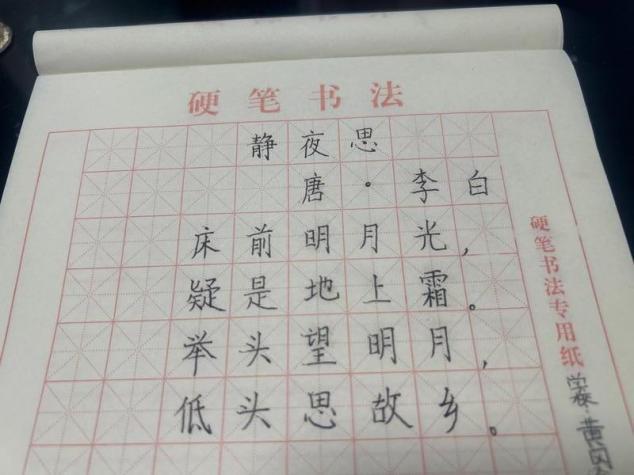 硬笔书法
静夜思
唐·李白
床前明月光，
疑是地上霜。
举头望明月，
低头思故乡。
硬笔书法专用纸